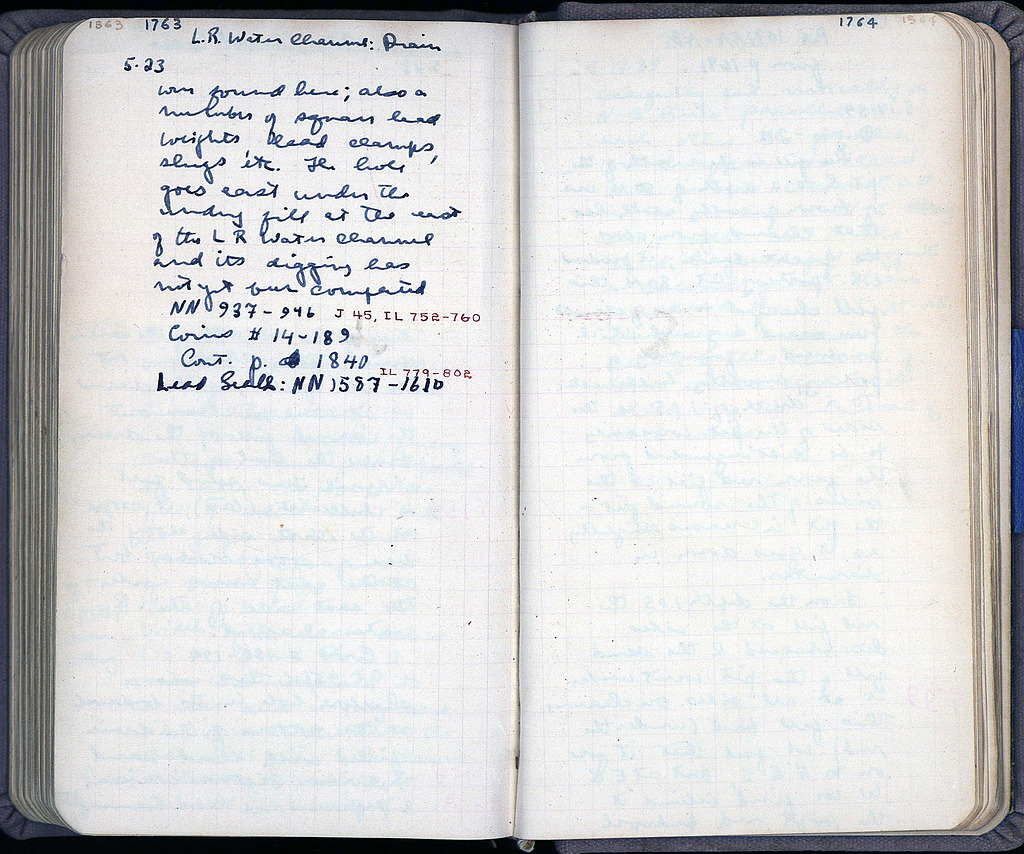 1863 1763
L.R. Water Channel: Drain
5-23
was found here; also a
number of square lead
weights, lead clamps,
slugs, etc. The hole
goes east under the
sandy fill at the east
of the L R Water Channel
and its digging has
not yet been completed
NN 937-946 J 45, IL 752-760
Coins # 14-189
Cont. p. 1840
IL 779-802
Lead Seals: NN 1587-1610
1764 1864